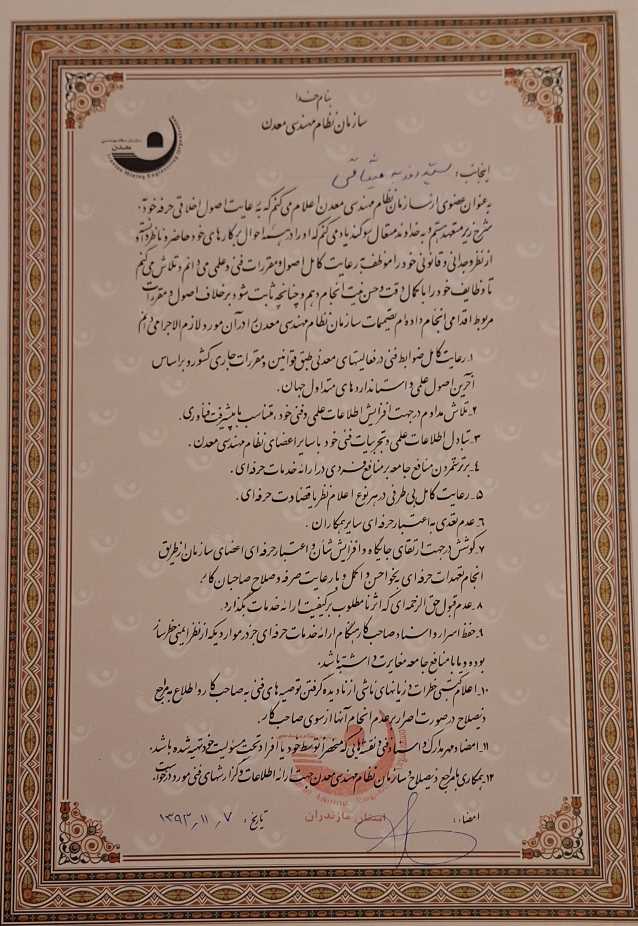 بنام خدا
سازمان نظام مهندسی معدن
سازمان نظام مهندسی
معدن
Iranian Mining Engineering Organization
اینجانب: سید میثاقی
به عنوان عضوی از سازمان نظام مهندسی معدن اعلام می کنم که به رعایت اصول اخلاقی حرفه خود به
شرح زیر متعهد هستم و به خداوند متعال سوگند یاد می کنم که او را در همه احوال بر کارهای خود حاضر و ناظر دانسته و
از نظر وجدانی و قانونی خود را موظف به رعایت کامل اصول و مقررات فنی و علمی می دانم و تلاش می کنم
تا وظایف خود را با کمال دقت و حسن نیت انجام دهم و چنانچه ثابت شود بر خلاف اصول و مقررات
مربوط اقدامی انجام داده ام تصمیمات سازمان نظام مهندسی معدن را در آن مورد لازم الاجرا می دانم
۱. رعایت کامل ضوابط فنی در فعالیتهای معدنی طبق قوانین و مقررات جاری کشور و بر اساس
آخرین اصول علمی و استانداردهای متداول جهان.
۲_ تلاش مداوم در جهت افزایش اطلاعات علمی و فنی خود، متناسب با پیشرفت فناوری.
۳_ تبادل اطلاعات علمی و تجربیات فنی خود با سایر اعضای نظام مهندسی معدن.
۴_ برتر شمردن منافع جامعه بر منافع فردی در ارائه خدمات حرفه ای.
۵_ رعایت کامل بی طرفی در هر نوع اعلام نظر یا قضاوت حرفه ای.
۶_ عدم تعدی به اعتبار حرفه ای سایر همکاران.
۷_ کوشش در جهت ارتقای جایگاه و افزایش شأن و اعتبار حرفه ای اعضای سازمان از طریق
انجام تعهدات حرفه ای بنحو احسن و اکمل و با رعایت صرفه و صلاح صاحبان کار.
۸_ عدم قبول حق الزحمه ای که اثر نامطلوب بر کیفیت ارائه خدمات بگذارد.
۹_ حفظ اسرار و اسناد صاحب کار هنگام ارائه خدمات حرفه ای جز در مواردیکه از نظر ایمنی خطرساز
بوده و یا با منافع جامعه مغایرت داشته باشد.
۱۰_ اعلام کتبی خطرات و زیانهای ناشی از نادیده گرفتن توصیه های فنی به صاحب کار و اطلاع به مراجع
ذیصلاح در صورت اصرار بر عدم انجام آنها از سوی صاحب کار.
۱۱_ امضاء و مهر مدارک و اسناد فنی و نقشه هایی که منحصراً توسط خود یا افراد تحت مسئولیت خود تهیه شده باشد.
۱۲_ همکاری با مراجع ذیصلاح و سازمان نظام مهندسی معدن جهت ارائه اطلاعات و گزارشهای فنی مورد درخواست.
امضاء:
استان مازندران
تاریخ: ۱۳۹۳٫۱۱٫۷